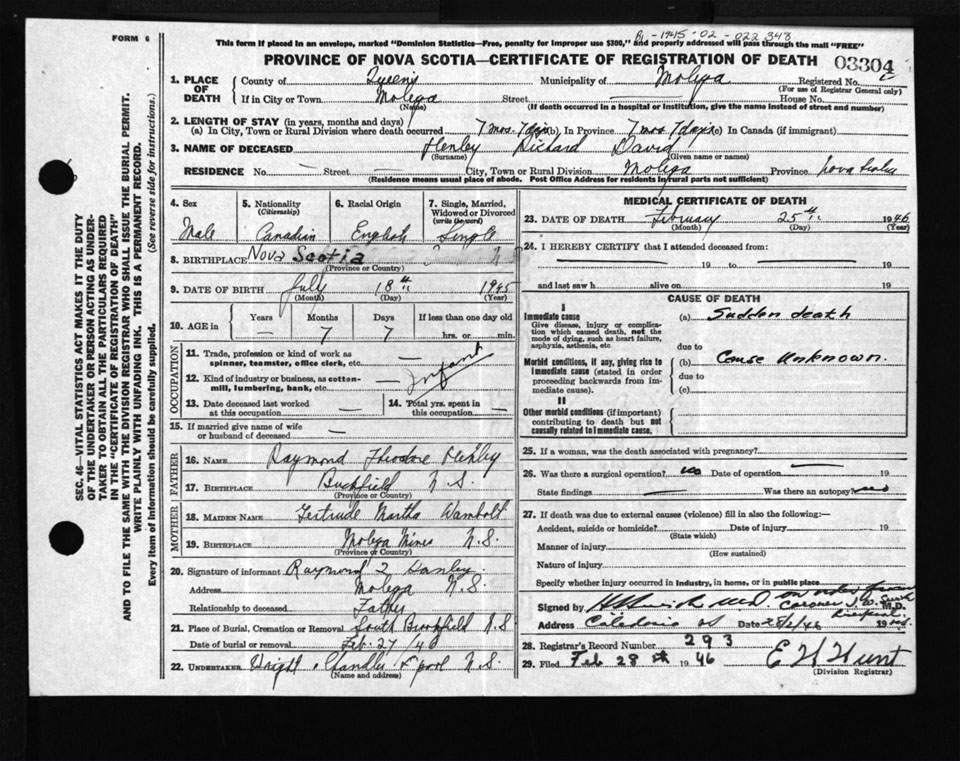 FORM 6
B- 1945-02-022348
This form if placed in an envelope, marked "Dominion Statistics—Free, penalty for improper use $300," and properly addressed will pass through the mail "FREE"
PROVINCE OF NOVA SCOTIA—CERTIFICATE OF REGISTRATION OF DEATH
03304
1. PLACE OF DEATH
County of Queens Municipality of Molega Registered No.
(For use of Registrar General only)
If in City or Town Molega Street House No.
(Name) (If death occurred in a hospital or institution, give the name instead of street and number)
2. LENGTH OF STAY (in years, months and days)
(a) In City, Town or Rural Division where death occurred 7 mos. 7 days (b), In Province 7 mos 7 days (c) In Canada (if immigrant)
3. NAME OF DECEASED Henley Richard David
(Surname) (Given name or names)
RESIDENCE No. — Street — City, Town or Rural Division Molega Province Nova Scotia
(Residence means usual place of abode. Post Office Address for residents in rural parts not sufficient)
4. Sex Male
5. Nationality (Citizenship) Canadian
6. Racial Origin English
7. Single, Married, Widowed or Divorced (write the word) Single
8. BIRTHPLACE Nova Scotia
(Province or Country)
9. DATE OF BIRTH July 18th 1945
(Month) (Day) (Year)
10. AGE in Years — Months 7 Days 7 If less than one day old hrs. or min.
OCCUPATION
11. Trade, profession or kind of work as spinner, teamster, office clerk, etc. —
12. Kind of industry or business, as cotton-mill, lumbering, bank, etc. — Infant
13. Date deceased last worked at this occupation —
14. Total yrs. spent in this occupation —
15. If married give name of wife or husband of deceased —
FATHER
16. NAME Raymond Theodore Henley
17. BIRTHPLACE N.S.
(Province or Country)
MOTHER
18. MAIDEN NAME Gertrude Martha Wambolt
19. BIRTHPLACE Molega Mines N.S.
(Province or Country)
20. Signature of informant Raymond T Hanley
Address Molega N.S.
Relationship to deceased Father
21. Place of Burial, Cremation or Removal South Brookfield N.S
Date of burial or removal Feb. 27/46
22. UNDERTAKER Chandler L'pool N.S.
(Name and address)
MEDICAL CERTIFICATE OF DEATH
23. DATE OF DEATH February 25th 1946
(Month) (Day) (Year)
24. I HEREBY CERTIFY that I attended deceased from:
19 to 19
and last saw h alive on 19
CAUSE OF DEATH
I
Immediate cause
Give disease, injury or complication which caused death, not the mode of dying, such as heart failure, asphyxia, asthenia, etc.
(a) Sudden death
due to
Morbid conditions, if any, giving rise to immediate cause (stated in order proceeding backwards from immediate cause).
(b) Cause Unknown.
due to
(c)
II
Other morbid conditions (if important) contributing to death but not causally related to immediate cause.
25. If a woman, was the death associated with pregnancy?
26. Was there a surgical operation? no Date of operation — 19
State findings — Was there an autopsy? no
27. If death was due to external causes (violence) fill in also the following:—
Accident, suicide or homicide? Date of injury 19
(State which)
Manner of injury
(How sustained)
Nature of injury
Specify whether injury occurred in industry, in home, or in public place
Signed by M.D.
Address Caledonia NS Date 28/2/46 19
28. Registrar's Record Number 293
29. Filed Feb 28th 1946 E H Hunt
(Division Registrar)
SEC. 46—VITAL STATISTICS ACT MAKES IT THE DUTY
OF THE UNDERTAKER OR PERSON ACTING AS UNDER-
TAKER TO OBTAIN ALL THE PARTICULARS REQUIRED
IN THE "CERTIFICATE OF REGISTRATION OF DEATH"
AND TO FILE THE SAME WITH THE DIVISION REGISTRAR WHO SHALL ISSUE THE BURIAL PERMIT.
WRITE PLAINLY WITH UNFADING INK. THIS IS A PERMANENT RECORD.
Every item of information should be carefully supplied. (See reverse side for instructions.)